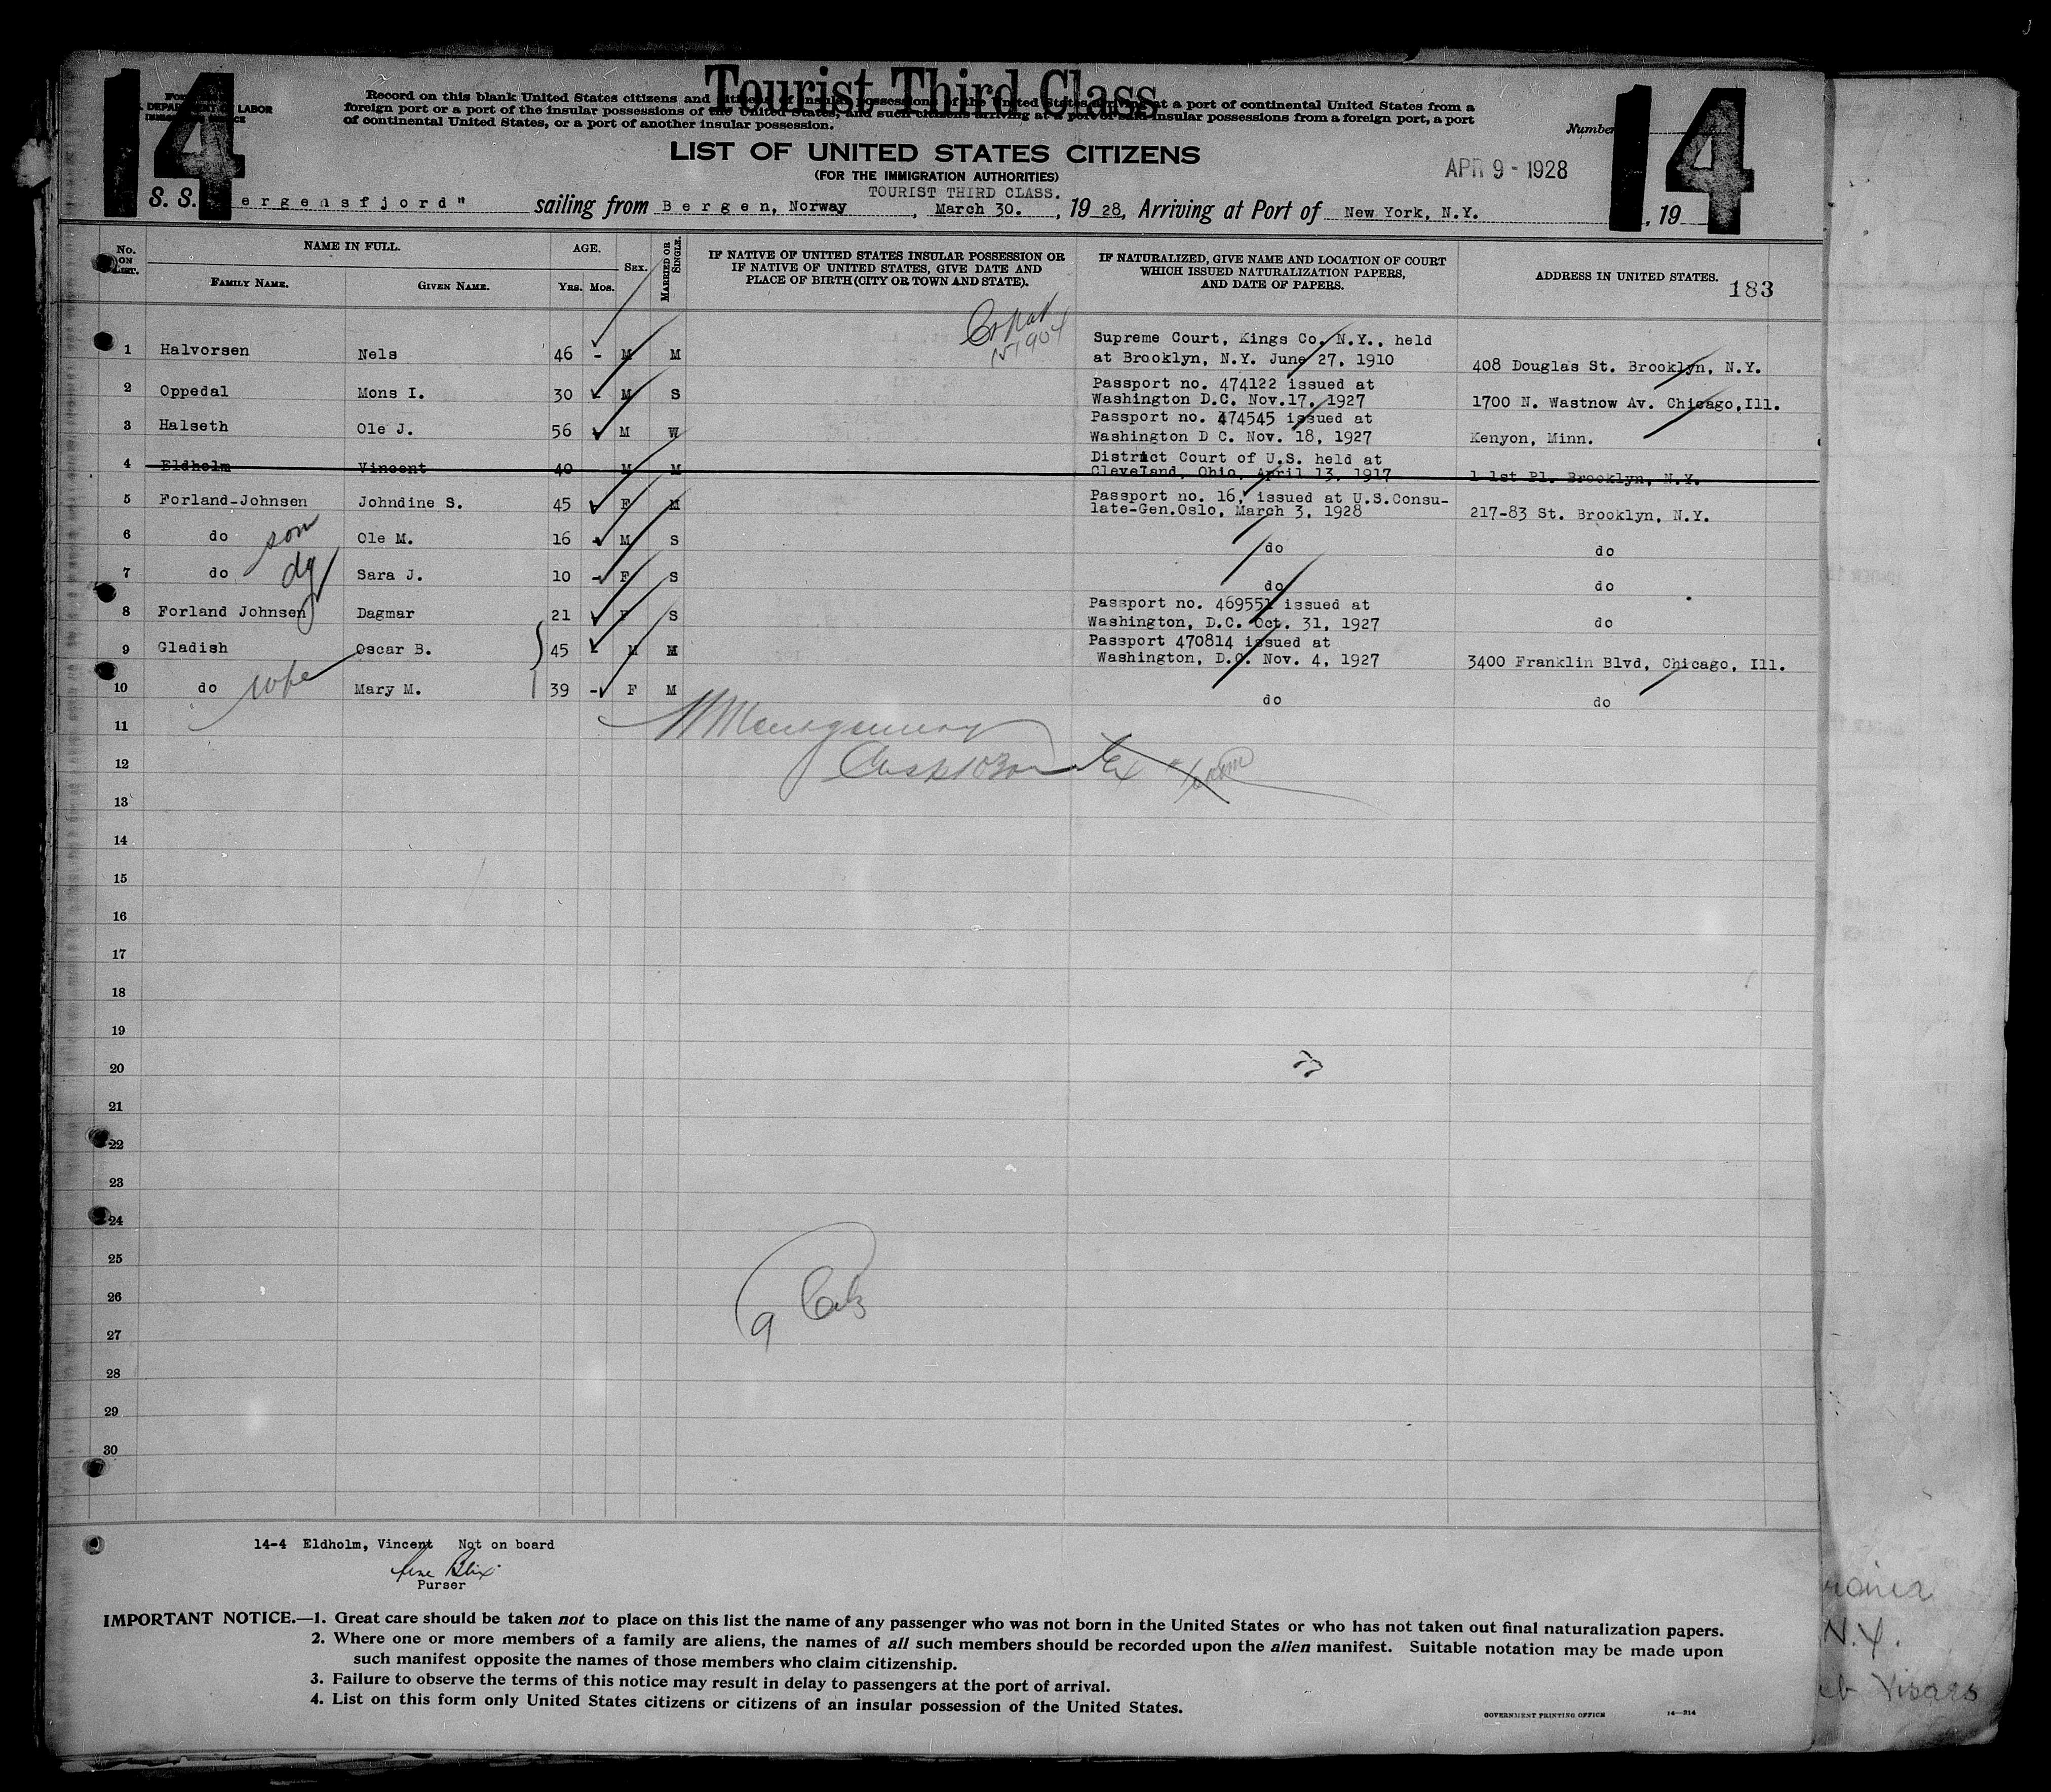 14
14
Tourist Third Class
DEPARTMENT OF LABOR
Record on this blank United States citizens and citizens of insular possessions of the United States arriving at a port of continental United States from a
foreign port or a port of the insular possessions of the United States, and such citizens arriving at a port of said insular possessions from a foreign port, a port
of continental United States, or a port of another insular possession.
Number
LIST OF UNITED STATES CITIZENS
(FOR THE IMMIGRATION AUTHORITIES)
APR 9 - 1928
TOURIST THIRD CLASS.
S. S. ergensfjord" sailing from Bergen, Norway, March 30., 19 28, Arriving at Port of New York, N.Y. , 19
No. ON LIST. NAME IN FULL. AGE. SEX. MARRIED OR SINGLE. IF NATIVE OF UNITED STATES INSULAR POSSESSION OR IF NATIVE OF UNITED STATES, GIVE DATE AND PLACE OF BIRTH (CITY OR TOWN AND STATE). IF NATURALIZED, GIVE NAME AND LOCATION OF COURT WHICH ISSUED NATURALIZATION PAPERS, AND DATE OF PAPERS. ADDRESS IN UNITED STATES.
FAMILY NAME. GIVEN NAME. Yrs. Mos.
183
1 Halvorsen Nels 46 - M M Supreme Court, Kings Co. N.Y., held
at Brooklyn, N.Y. June 27, 1910 408 Douglas St. Brooklyn, N.Y.
2 Oppedal Mons I. 30 - M S Passport no. 474122 issued at
Washington D.C. Nov.17, 1927 1700 N. Wastnow Av. Chicago,Ill.
3 Halseth Ole J. 56 M W Passport no. 474545 issued at
Washington D C. Nov. 18, 1927 Kenyon, Minn.
4 Eldholm Vincent 40 M M District Court of U.S. held at
Cleveland, Ohio, April 13, 1917 1 1st Pl. Brooklyn, N.Y.
5 Forland-Johnsen Johndine S. 45 F M Passport no. 16, issued at U.S.Consu-
late-Gen.Oslo, March 3, 1928 217-83 St. Brooklyn, N.Y.
6 do son Ole M. 16 - M S do do
7 do dg Sara J. 10 - F S do do
8 Forland Johnsen Dagmar 21 F S Passport no. 469551 issued at
Washington, D.C. Oct. 31, 1927 do
9 Gladish Oscar B. 45 - M M Passport 470814 issued at
Washington, D.C. Nov. 4, 1927 3400 Franklin Blvd, Chicago, Ill.
10 do wife Mary M. 39 - F M do do
11
12
13
14
15
16
17
18
19
20
21
22
23
24
25
26
27
28
29
30
14-4 Eldholm, Vincent Not on board
Purser
IMPORTANT NOTICE.—1. Great care should be taken not to place on this list the name of any passenger who was not born in the United States or who has not taken out final naturalization papers.
2. Where one or more members of a family are aliens, the names of all such members should be recorded upon the alien manifest. Suitable notation may be made upon
such manifest opposite the names of those members who claim citizenship.
3. Failure to observe the terms of this notice may result in delay to passengers at the port of arrival.
4. List on this form only United States citizens or citizens of an insular possession of the United States.
GOVERNMENT PRINTING OFFICE 14—214
N.Y.